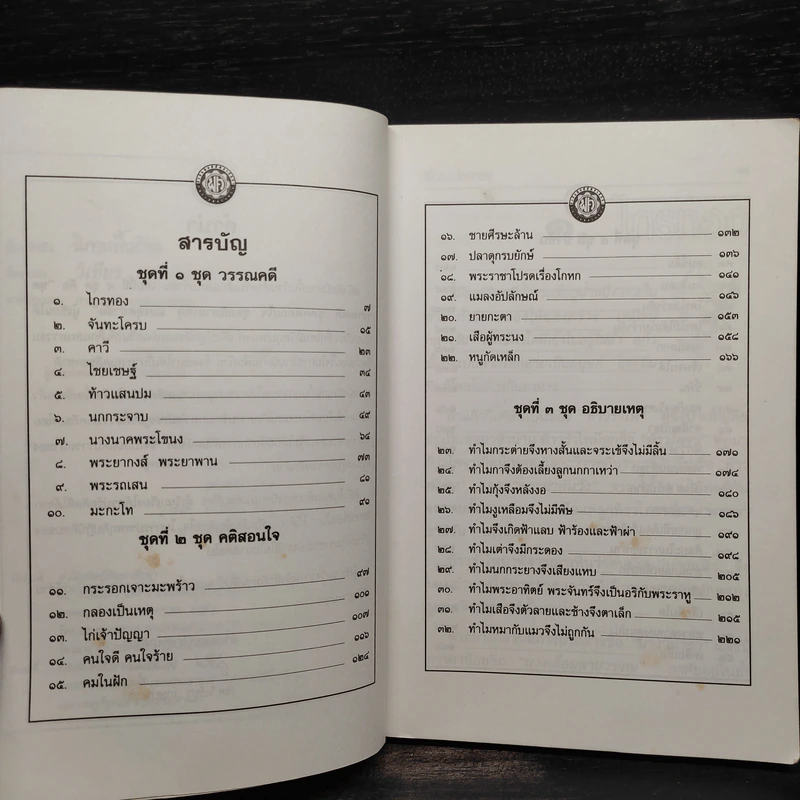 สารบัญ
ชุดที่ ๑ ชุด วรรณคดี
๑. ไกรทอง ๗
๒. จันทะโครบ ๑๕
๓. คาวี ๒๓
๔. ไชยเชษฐ์ ๓๔
๕. ท้าวแสนปม ๔๓
๖. นกกระจาบ ๔๙
๗. นางนาคพระโขนง ๖๔
๘. พระยากงส์ พระยาพาน ๗๓
๙. พระรถเสน ๘๑
๑๐. มะกะโท ๙๑
ชุดที่ ๒ ชุด คติสอนใจ
๑๑. กระรอกเจาะมะพร้าว ๙๗
๑๒. กลองเป็นเหตุ ๑๐๑
๑๓. ไก่เจ้าปัญญา ๑๐๗
๑๔. คนใจดี คนใจร้าย ๑๑๖
๑๕. คมในฝัก ๑๒๔
๑๖. ชายศีรษะล้าน ๑๓๒
๑๗. ปลาดุกรบยักษ์ ๑๓๖
๑๘. พระราชาโปรดเรื่องโกหก ๑๔๑
๑๙. แมลงอัปลักษณ์ ๑๔๖
๒๐. ยายกะตา ๑๕๓
๒๑. เสือผู้ทระนง ๑๕๘
๒๒. หนูกัดเหล็ก ๑๖๖
ชุดที่ ๓ ชุด อธิบายเหตุ
๒๓. ทำไมกระต่ายจึงหางสั้นและจระเข้จึงไม่มีลิ้น ๑๗๑
๒๔. ทำไมกาจึงต้องเลี้ยงลูกนกกาเหว่า ๑๗๔
๒๕. ทำไมกุ้งจึงหลังงอ ๑๘๐
๒๖. ทำไมงูเหลือมจึงไม่มีพิษ ๑๘๖
๒๗. ทำไมจึงเกิดฟ้าแลบ ฟ้าร้องและฟ้าผ่า ๑๙๑
๒๘. ทำไมเต่าจึงมีกระดอง ๑๙๘
๒๙. ทำไมนกกระยางจึงเสียงแหบ ๒๐๕
๓๐. ทำไมพระอาทิตย์ พระจันทร์จึงเป็นอริกับพระราหู ๒๑๒
๓๑. ทำไมเสือจึงตัวลายและช้างจึงตาเล็ก ๒๑๕
๓๒. ทำไมหมากับแมวจึงไม่ถูกกัน ๒๒๑